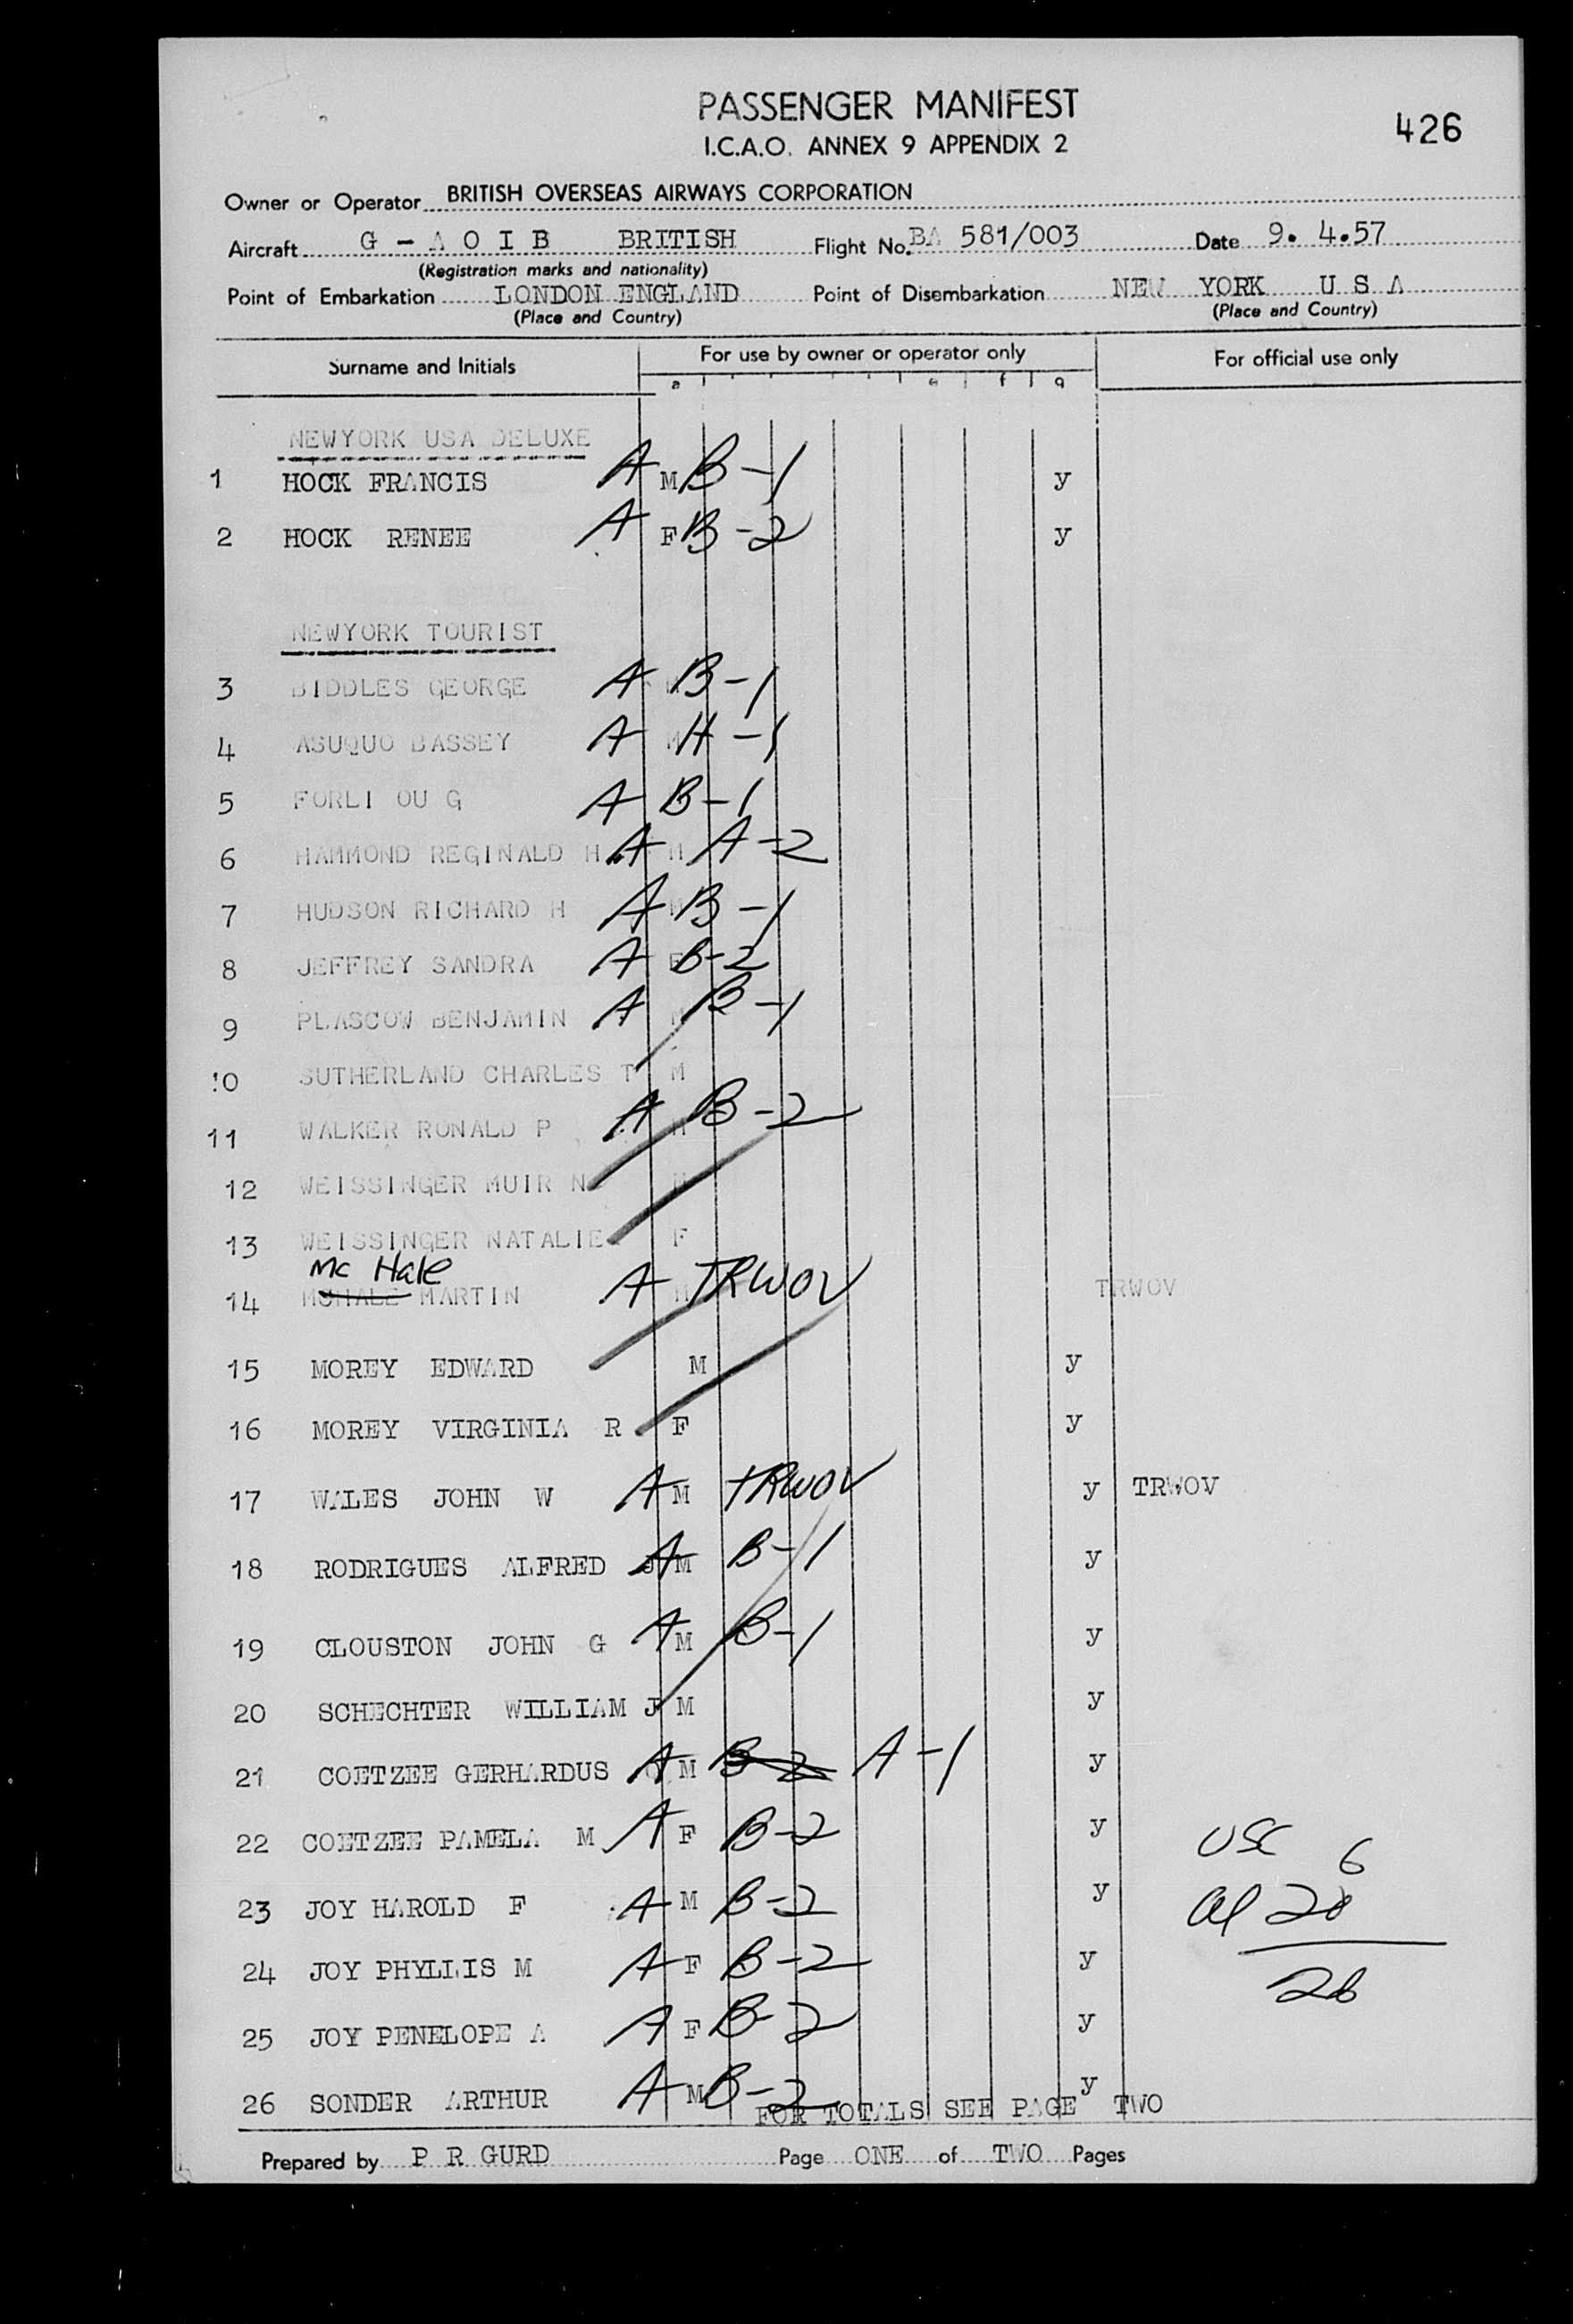 PASSENGER MANIFEST
I.C.A.O. ANNEX 9 APPENDIX 2
426
Owner or Operator BRITISH OVERSEAS AIRWAYS CORPORATION
Aircraft G - A O I B BRITISH Flight No. BA 581/003 Date 9. 4.57
(Registration marks and nationality)
Point of Embarkation LONDON ENGLAND Point of Disembarkation NEW YORK U S A
(Place and Country) (Place and Country)
Surname and Initials For use by owner or operator only For official use only
a e f g
NEWYORK USA DELUXE
1 HOCK FRANCIS A M B-1 y
2 HOCK RENEE A F B-2 y
NEWYORK TOURIST
3 BIDDLES GEORGE A M B-1
4 ASUQUO BASSEY A M H-1
5 FORLI OU G A B-1
6 HAMMOND REGINALD H A M A-2
7 HUDSON RICHARD H A M B-1
8 JEFFREY SANDRA A F B-2
9 PLASCOW BENJAMIN A M B-1
10 SUTHERLAND CHARLES T M
11 WALKER RONALD P A M B-2
12 WEISSINGER MUIR N M
13 WEISSINGER NATALIE F
Mc Hale
14 MCHALE MARTIN A M TRWOV TRWOV
15 MOREY EDWARD M y
16 MOREY VIRGINIA R F y
17 WALES JOHN W A M TRWOV y TRWOV
18 RODRIGUES ALFRED J A M B-1 y
19 CLOUSTON JOHN G A M B-1 y
20 SCHECHTER WILLIAM J M y
21 COETZEE GERHARDUS A M B-2 A-1 y
22 COETZEE PAMELA M A F B-2 y
USC 6
23 JOY HAROLD F A M B-2 y
Al 20
24 JOY PHYLLIS M A F B-2 y
26
25 JOY PENELOPE A A F B-2 y
26 SONDER ARTHUR A M B-2 y
FOR TOTALS SEE PAGE TWO
Prepared by P R GURD Page ONE of TWO Pages